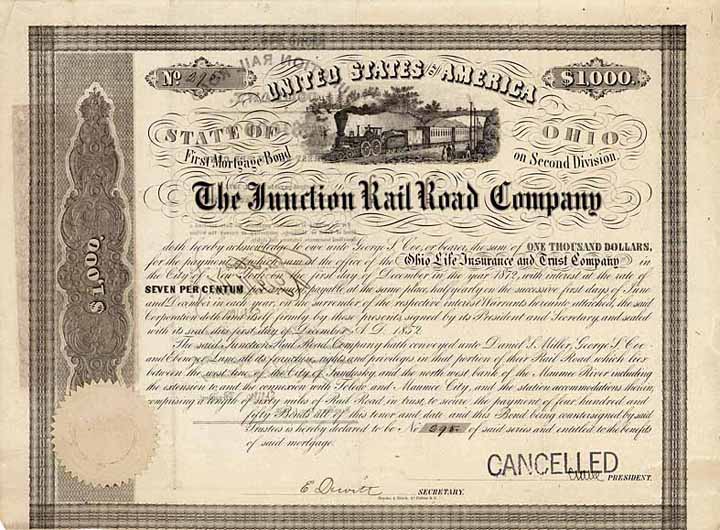 No 295 UNITED STATES OF AMERICA $1,000.
STATE OF OHIO
First Mortgage Bond on Second Division.
The Junction Rail Road Company
doth hereby acknowledge to owe unto George S. Coe, or bearer, the sum of ONE THOUSAND DOLLARS,
for the payment of which sum at the office of the Ohio Life Insurance and Trust Company in
the City of New York on the first day of December in the year 1872, with interest at the rate of
SEVEN PER CENTUM payable, at the same place, half yearly on the successive first days of June
and December in each year, on the surrender of the respective interest Warrants hereunto attached, the said
Corporation doth bind itself firmly by these presents, signed by its President and Secretary, and sealed
with its seal, this first day of December A. D. 1852.
The said Junction Rail Road Company hath conveyed unto Daniel S. Miller, George S. Coe
and Ebenezer Lane, all its franchise, rights and privileges in that portion of their Rail Road which lies
between the west line of the City of Sandusky and the north west bank of the Maumee River including
the extension to and the connexion with Toledo and Maumee City, and the station accommodations therein,
comprising a length of sixty miles of Rail Road in trust, to secure the payment of four hundred and
fifty Bonds all of this tenor and date and this Bond being countersigned by said
Trustees is hereby declared to be No 295 of said series and entitled to the benefits
of said mortgage.
$1,000.
CANCELLED
PRESIDENT.
E Dewitt SECRETARY.